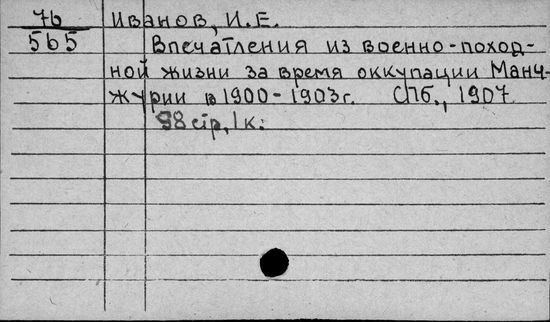 76 Иванов, И.Е.
565 Впечатления из военно-поход-
ной жизни за время оккупации Манч-
журии в 1900-1903г. СПб., 1907.
98 стр, 1 к.